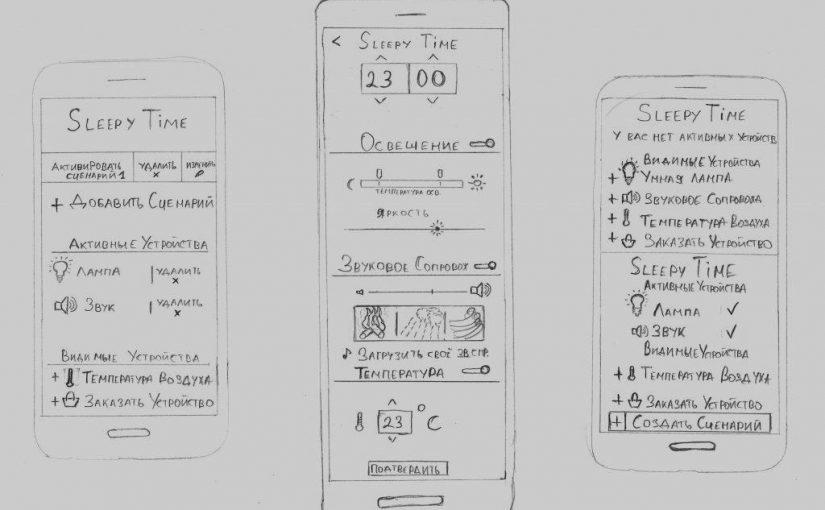 SLEEPY TIME
АКТИВИРОВАТЬ СЦЕНАРИЙ 1
УДАЛИТЬ ×
ИЗМЕНИТЬ
+ ДОБАВИТЬ СЦЕНАРИЙ
АКТИВНЫЕ УСТРОЙСТВА
ЛАМПА | УДАЛИТЬ ×
ЗВУК | УДАЛИТЬ ×
ВИДИМЫЕ УСТРОЙСТВА
+ ТЕМПЕРАТУРА ВОЗДУХА
+ ЗАКАЗАТЬ УСТРОЙСТВО
< SLEEPY TIME
23 00
ОСВЕЩЕНИЕ
ТЕМПЕРАТУРА ОСВ.
ЯРКОСТЬ
ЗВУКОВОЕ СОПРОВОЖ
♪ ЗАГРУЗИТЬ СВОЁ ЗВ.СПР.
ТЕМПЕРАТУРА
23 °C
ПОДТВЕРДИТЬ
SLEEPY TIME
У ВАС НЕТ АКТИВНЫХ УСТРОЙСТВ
ВИДИМЫЕ УСТРОЙСТВА
+ УМНАЯ ЛАМПА
+ ЗВУКОВОЕ СОПРОВОЖД
+ ТЕМПЕРАТУРА ВОЗДУХА
+ ЗАКАЗАТЬ УСТРОЙСТВО
SLEEPY TIME
АКТИВНЫЕ УСТРОЙСТВА
ЛАМПА ✓
ЗВУК ✓
ВИДИМЫЕ УСТРОЙСТВА
+ ТЕМПЕРАТУРА ВОЗДУХА
+ ЗАКАЗАТЬ УСТРОЙСТВО
+ СОЗДАТЬ СЦЕНАРИЙ